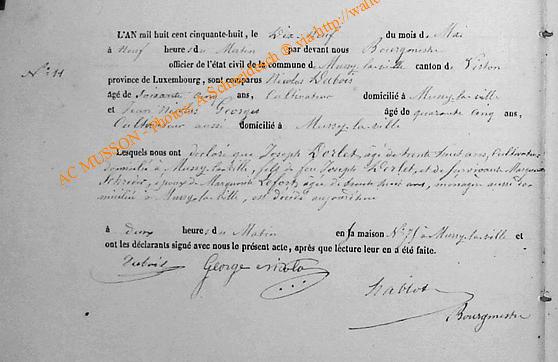 L'AN mil huit cent cinquante-huit, le Dix neuf du mois de Mai
à neuf heures du Matin par devant nous Bourgmestre
N° 11
officier de l'état civil de la commune de Mussy-la-ville canton de Virton
province de Luxembourg, sont comparus Nicolas Dubois
âgé de soixante cinq ans, Cultivateur domicilié à Mussy-la-ville
et Jean Nicolas Georges âgé de quarante cinq ans,
Cultivateur aussi domicilié à Mussy-la-ville
Lesquels nous ont déclaré que Joseph Dorlet, âgé de trente huit ans, Cultivateur
domicilié à Mussy-la-ville, fils de feu Joseph Dorlet, et de survivante Marguerite
époux de Marguerite Lefort, âgée de trente ans, ménagère aussi do
micilié à Mussy-la-ville, est décédé aujourd'hui
à deux heures du Matin en sa maison N° 75 à Mussy-la-ville et
ont les déclarants signé avec nous le présent acte, après que lecture leur en a été faite.
Dubois George nicola
Hablot
Bourgmestre
AC MUSSON - Photos A Schmidbach © via http://www.